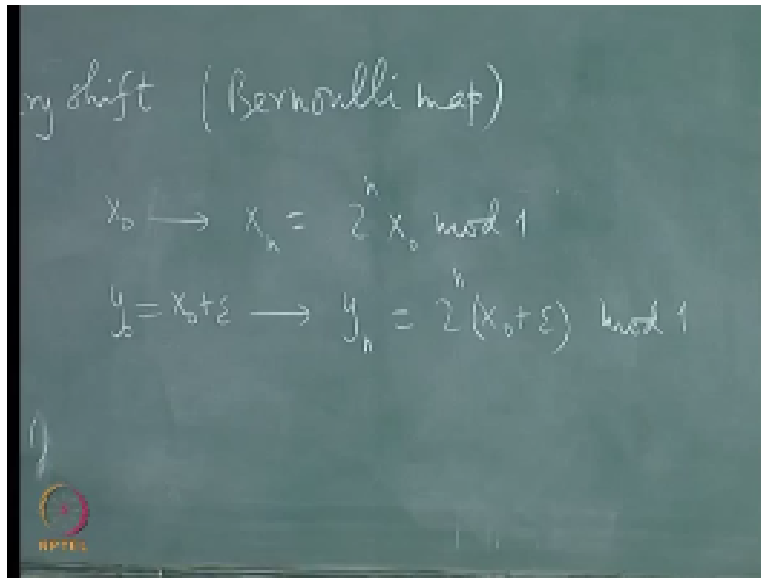 ny shift (Bernoulli map)
x₀ ⟶ xₙ = 2ⁿ x₀ mod 1
y₀ = x₀+ε ⟶ yₙ = 2ⁿ(x₀+ε) mod 1
1)
NPTEL